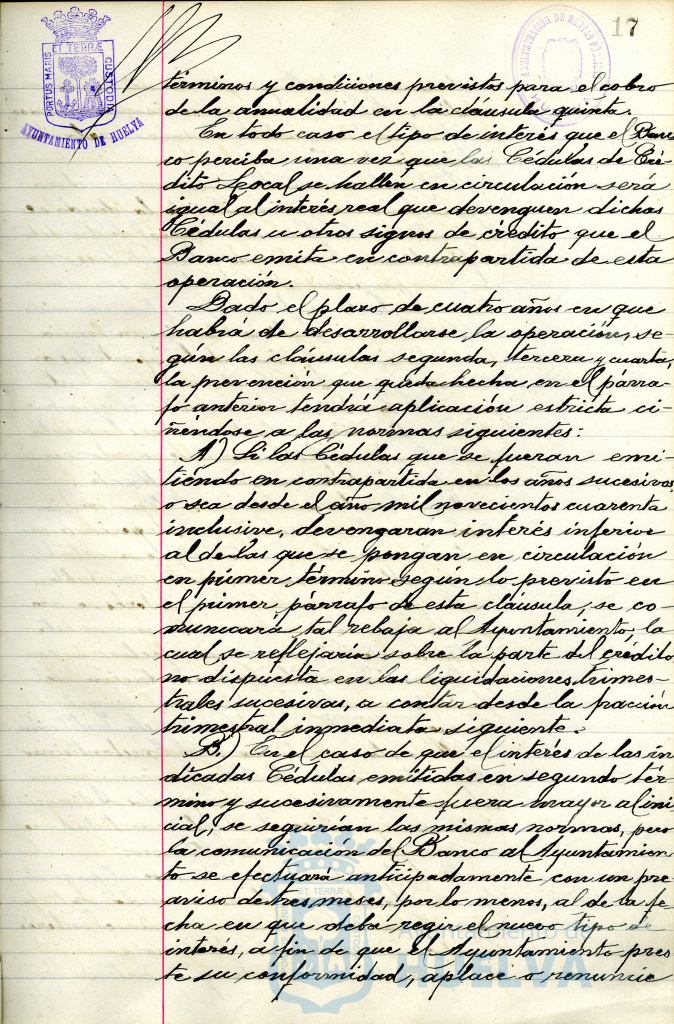 17
PORTUS MARIS ET TERRÆ CUSTODIA
AYUNTAMIENTO DE HUELVA
términos y condiciones previstos para el cobro
de la anualidad en la cláusula quinta.
En todo caso el tipo de interés que el Ban-
co perciba una vez que las Cédulas de Cré-
dito Local se hallen en circulación será
igual al interés real que devenguen dichas
Cédulas u otros signos de crédito que el
Banco emita en contrapartida de esta
operación.
Dado el plazo de cuatro años en que
habrá de desarrollarse la operación, se-
gún las cláusulas segunda, tercera y cuarta,
la prevención que queda hecha en el párra-
fo anterior tendrá aplicación estricta ci-
ñéndose a las normas siguientes:
A) Si las Cédulas que se fueran emi-
tiendo en contrapartida en los años sucesivos
o sea desde el año mil novecientos cuarenta
inclusive, devengaran interés inferior
al de las que se pongan en circulación
en primer término, según lo previsto en
el primer párrafo de esta cláusula, se co-
municará tal rebaja al Ayuntamiento, la
cual se reflejaría sobre la parte del crédito
no dispuesta en las liquidaciones trimes-
trales sucesivas, a contar desde la fracción
trimestral inmediata siguiente.
B) En el caso de que el interés de las in-
dicadas Cédulas emitidas en segundo tér-
mino y sucesivamente fuera mayor al ini-
cial, se seguirían las mismas normas, pero
la comunicación del Banco al Ayuntamien-
to se efectuará anticipadamente con un pre-
aviso de tres meses, por lo menos, al de la fe-
cha en que deba regir el nuevo tipo de
interés, a fin de que el Ayuntamiento pres-
te su conformidad, aplace o renuncie
ET TERRÆ
HUELVA